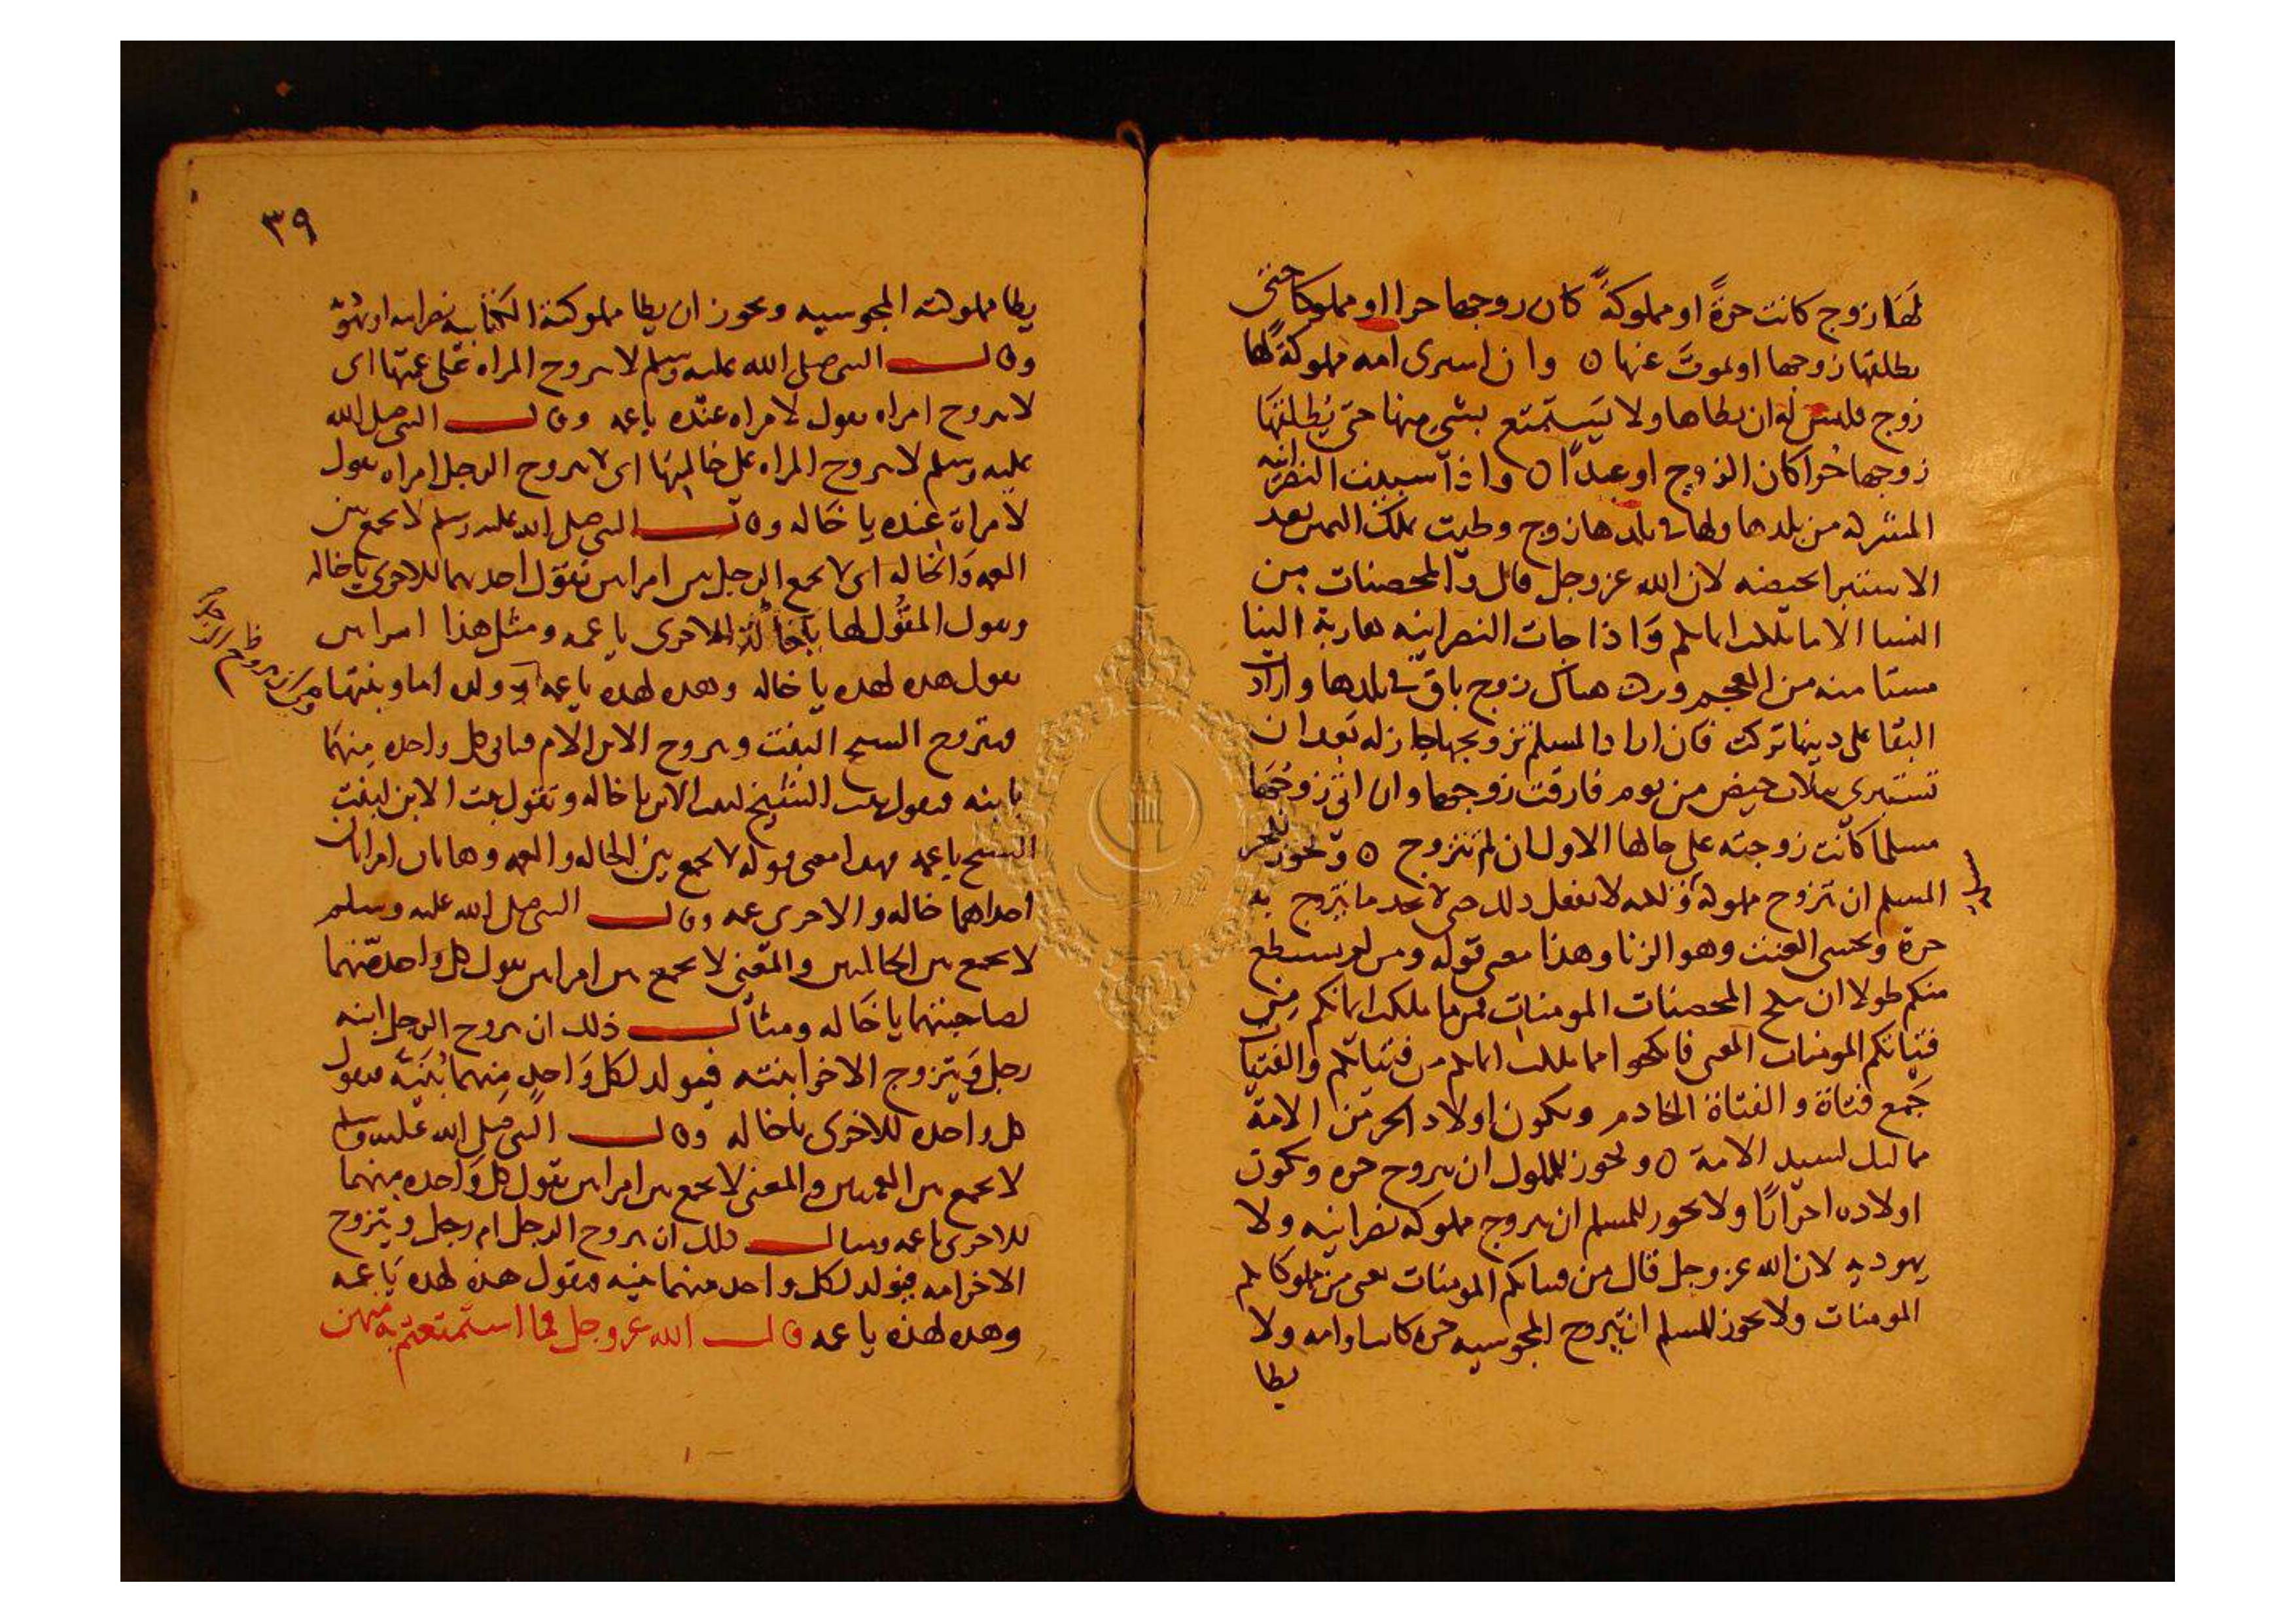 لها زوج كانت حرة او مملوكة كان زوجها حرا او مملوكا حتى
يطلقها زوجها او يموت عنها ه وان اشترى امه مملوكة لها
زوج فليس له ان يطاها ولا يستمتع بشي منها حتى يطلقها
زوجها حرا كان الزوج او عبدا ه واذا سبيت النصرانيه
المشركه من بلدها ولها في بلدها زوج وطيت بملك اليمين بعد
الاستبرا بحيضه لان الله عز وجل قال والمحصنات من
النسا الا ما ملكت ايمانكم واذا جات النصرانيه هاربة الينا
مستامنه من العجم ولها هناك زوج باق في بلدها واراد
البقا على دينها تركت فان اراد المسلم تزويجها جاز له بعد ان
تستبري بثلاث حيض من يوم فارقت زوجها وان اتى زوجها
مسلما كانت زوجته على حالها الاول ان لم تتزوج ه ويجوز للحر
المسلم ان يتزوج مملوكة ولكنه لا يفعل ذلك حتى لا يجد ما يتزوج به
حرة ويخشى العنت وهو الزنا وهذا معنى قوله ومن لم يستطع
منكم طولا ان ينكح المحصنات المومنات فمن ما ملكت ايمانكم من
فتياتكم المومنات المعنى فانكحوا مما ملكت ايمانكم من فتياتكم والفتيات
جمع فتاة والفتاة الخادم ويكون اولاد الحر من الامة
مماليك لسيد الامة ه ويجوز للمملوك ان يتزوج حره وتكون
اولاده احرارا ولا يجوز للمسلم ان يتزوج مملوكه نصرانيه ولا
يهوديه لان الله عز وجل قال من فتياتكم المومنات يعني من مملوكاتكم
المومنات ولا يجوز للمسلم ان يتزوج المجوسيه حره كانت او امه ولا
يطا
٣٩
يطا مملوكته المجوسيه ويجوز ان يطا مملوكته الكتابيه نصرانيه او يهوديه
وقال النبي صلى الله عليه وسلم لا يتزوج المراه على عمتها اي
لا يتزوج امراه يقول لامراه عنده يا عمه وقال النبي صلى الله
عليه وسلم لا يتزوج المراه على خالتها اي لا يتزوج الرجل امراه يقول
لامراة عنده يا خاله وقال النبي صلى الله عليه وسلم لا يجمع بين
العمه والخاله اي لا يجمع الرجل بين امراتين تقول احديهما للاخرى يا خاله
ويقول المقول لها يا خالة للاخرى يا عمه ومثل هذا امراتين
يقول هذه لهذه يا خاله وهذه لهذه يا عمه ولدى اما وبنتها
فيتزوج الشيخ البنت ويتزوج الابن الام فياتي كل واحده منهما
بابنه فيقول بنت الشيخ لبنت الابن يا خاله وتقول بنت الابن لبنت
الشيخ يا عمه فهذا معنى قوله لا يجمع بين الخاله والعمه وهاتان امراتان
احداهما خاله والاخرى عمه وقال النبي صلى الله عليه وسلم
لا يجمع بين الخالتين والمعنى لا يجمع بين امراتين يقول كل واحدة منهما
لصاحبتهما يا خاله ومثال ذلك ان يتزوج الرجل ابنه
رجل ويتزوج الاخر ابنته فيولد لكل واحد منهما بنيه فيقول
كل واحده للاخرى يا خاله وقال النبي صلى الله عليه وسلم
لا يجمع بين العمتين والمعنى لا يجمع بين امراتين يقول كل واحده منهما
للاخرى يا عمه ومثال ذلك ان يتزوج الرجل ام رجل ويتزوج
الاخر امه فيولد لكل واحد منهما بنيه فيقول هذه لهذه يا عمه
وهذه لهذه يا عمه قال الله عز وجل فما استمتعتم به منهن